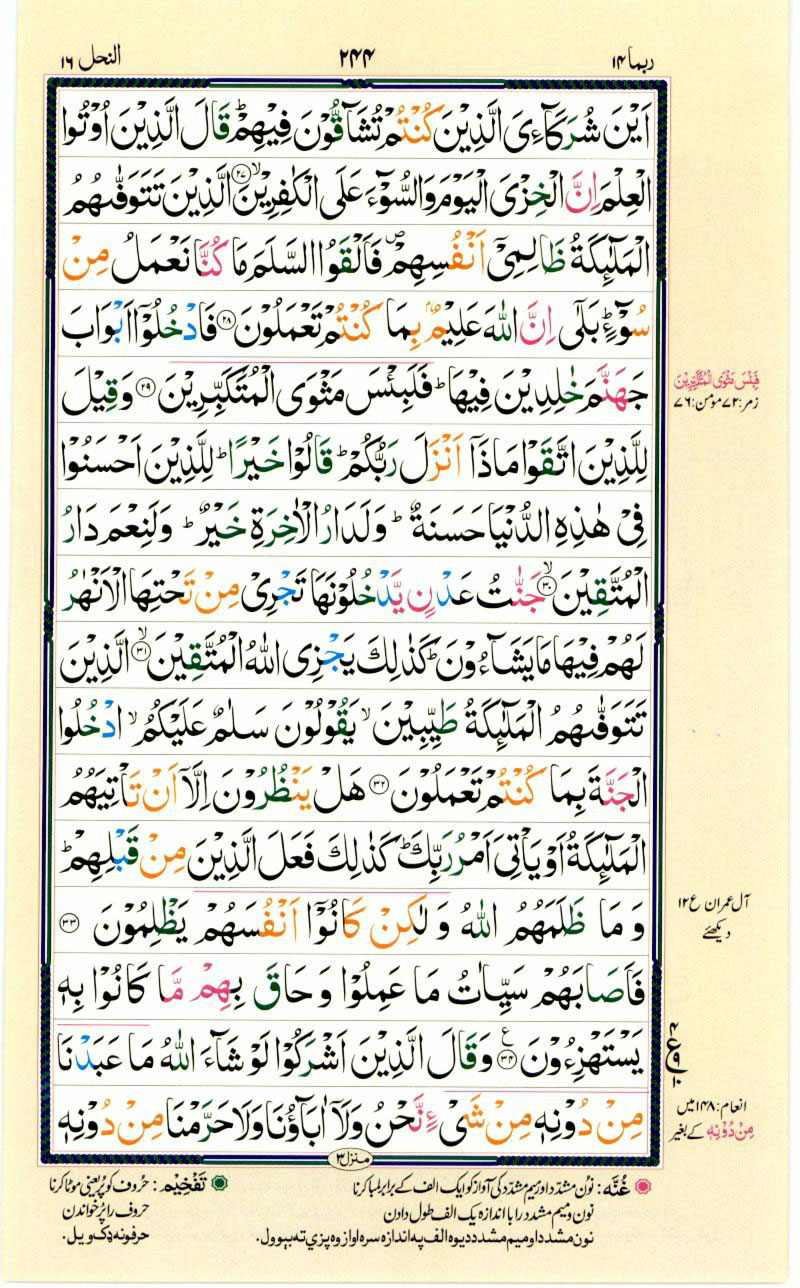 ربما ۱۴
۲۴۴
النحل ۱۶
اَيْنَ شُرَكَآءِیَ الَّذِيْنَ كُنْتُمْ تُشَآقُّوْنَ فِيْهِمْ ؕ قَالَ الَّذِيْنَ اُوْتُوا
الْعِلْمَ اِنَّ الْخِزْیَ الْيَوْمَ وَالسُّوْٓءَ عَلَی الْكٰفِرِيْنَ ۙ ﴿۲۷﴾ الَّذِيْنَ تَتَوَفّٰىهُمُ
الْمَلٰٓئِكَةُ ظَالِمِیْٓ اَنْفُسِهِمْ ۪ فَاَلْقَوُا السَّلَمَ مَا كُنَّا نَعْمَلُ مِنْ
سُوْٓءٍ ؕ بَلٰٓی اِنَّ اللّٰهَ عَلِيْمٌۢ بِمَا كُنْتُمْ تَعْمَلُوْنَ ﴿۲۸﴾ فَادْخُلُوْٓا اَبْوَابَ
جَهَنَّمَ خٰلِدِيْنَ فِيْهَا ؕ فَلَبِئْسَ مَثْوَی الْمُتَكَبِّرِيْنَ ﴿۲۹﴾ وَقِيْلَ
لِلَّذِيْنَ اتَّقَوْا مَاذَآ اَنْزَلَ رَبُّكُمْ ؕ قَالُوْا خَيْرًا ؕ لِلَّذِيْنَ اَحْسَنُوْا
فِیْ هٰذِهِ الدُّنْيَا حَسَنَةٌ ؕ وَلَدَارُ الْاٰخِرَةِ خَيْرٌ ؕ وَلَنِعْمَ دَارُ
الْمُتَّقِيْنَ ۙ ﴿۳۰﴾ جَنّٰتُ عَدْنٍ يَّدْخُلُوْنَهَا تَجْرِیْ مِنْ تَحْتِهَا الْاَنْهٰرُ
لَهُمْ فِيْهَا مَا يَشَآءُوْنَ ؕ كَذٰلِكَ يَجْزِی اللّٰهُ الْمُتَّقِيْنَ ۙ ﴿۳۱﴾ الَّذِيْنَ
تَتَوَفّٰىهُمُ الْمَلٰٓئِكَةُ طَيِّبِيْنَ ۙ يَقُوْلُوْنَ سَلٰمٌ عَلَيْكُمُ ۙ ادْخُلُوا
الْجَنَّةَ بِمَا كُنْتُمْ تَعْمَلُوْنَ ﴿۳۲﴾ هَلْ يَنْظُرُوْنَ اِلَّآ اَنْ تَاْتِيَهُمُ
الْمَلٰٓئِكَةُ اَوْ يَاْتِیَ اَمْرُ رَبِّكَ ؕ كَذٰلِكَ فَعَلَ الَّذِيْنَ مِنْ قَبْلِهِمْ ؕ
وَمَا ظَلَمَهُمُ اللّٰهُ وَلٰكِنْ كَانُوْٓا اَنْفُسَهُمْ يَظْلِمُوْنَ ﴿۳۳﴾
فَاَصَابَهُمْ سَيِّاٰتُ مَا عَمِلُوْا وَحَاقَ بِهِمْ مَّا كَانُوْا بِهٖ
يَسْتَهْزِءُوْنَ ﴿۳۴﴾ ع وَقَالَ الَّذِيْنَ اَشْرَكُوْا لَوْ شَآءَ اللّٰهُ مَا عَبَدْنَا
مِنْ دُوْنِهٖ مِنْ شَیْءٍ نَّحْنُ وَلَآ اٰبَآؤُنَا وَلَا حَرَّمْنَا مِنْ دُوْنِهٖ
فَبِئْسَ مَثْوَی الْمُتَكَبِّرِيْنَ
زمر:۷۲ مومن:۷۶
آل عمران ع۱۲
دیکھئے
۴
ع۹
۱۰
انعام:۱۴۸ میں
مِنْ دُوْنِهٖ کے بغیر
منزل۳
غُنَّه: نون مشدد اور میم مشدد کی آواز کو ایک الف کے برابر لمبا کرنا
تَفْخِيْم: حروف کو پُر یعنی موٹا کرنا
نون و میم مشدد را با اندازه یک الف طول دادن
حروف را پُر خواندن
نون مشدد او میم مشدد د یوه الف په اندازه سره اواز وه پزي ته بېوول.
حرفونه ډک ویل.